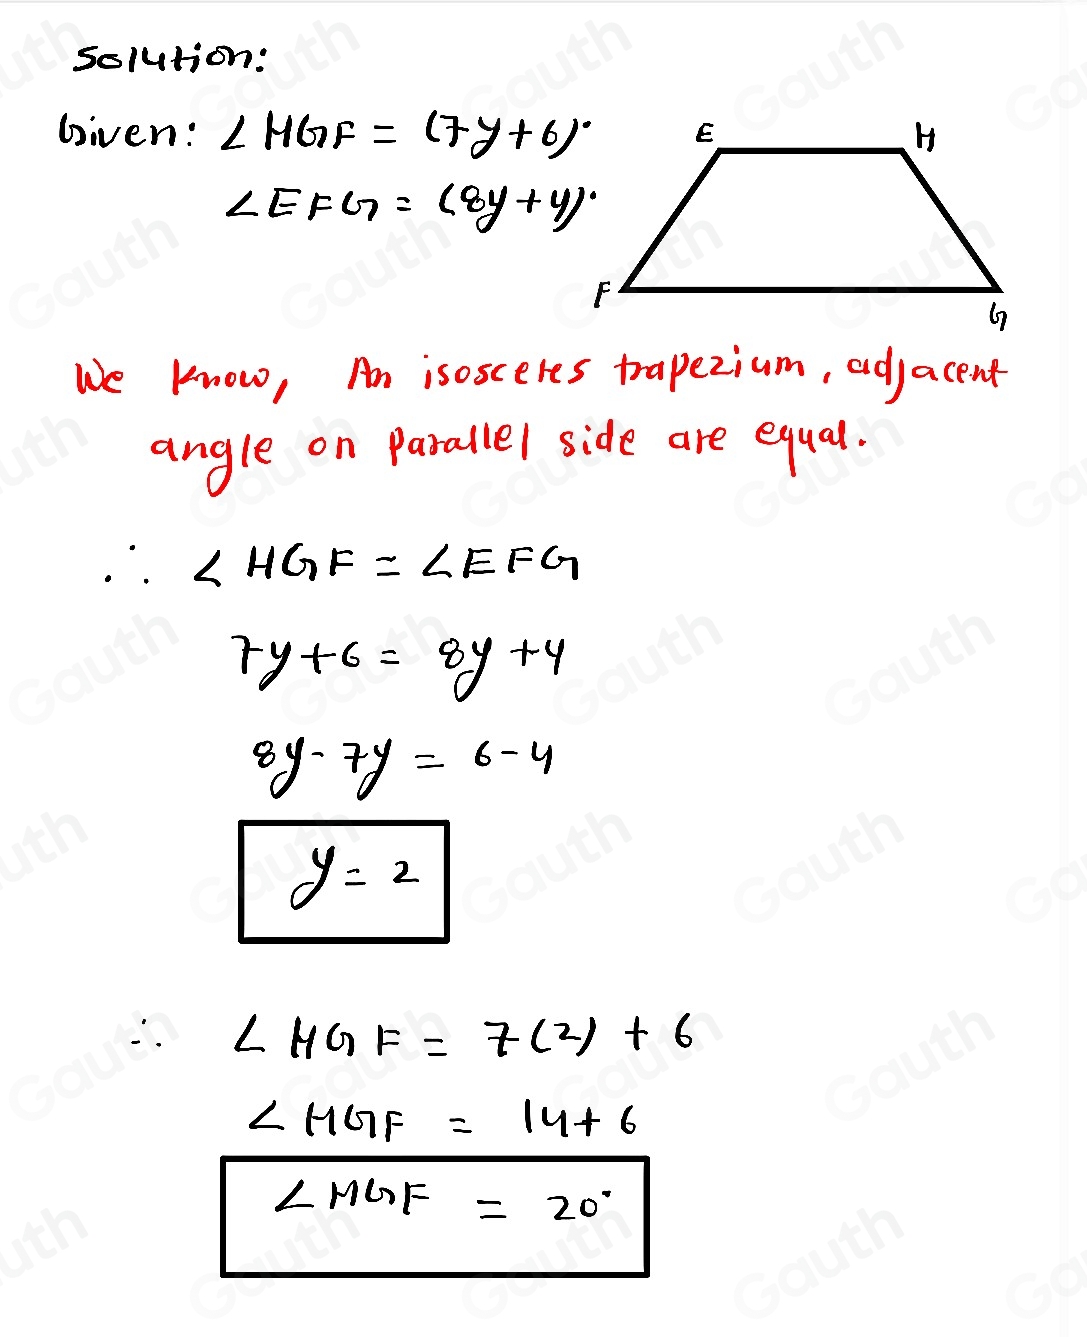 Solution:
Given: ∠HGF = (7y+6)°
∠EFG = (8y+4)°
E
H
F
G
We know, An isosceles trapezium, adjacent
angle on parallel side are equal.
∴ ∠HGF = ∠EFG
7y+6 = 8y+4
8y-7y = 6-4
y = 2
∴ ∠HGF = 7(2) + 6
∠HGF = 14+6
∠HGF = 20°
Gauth